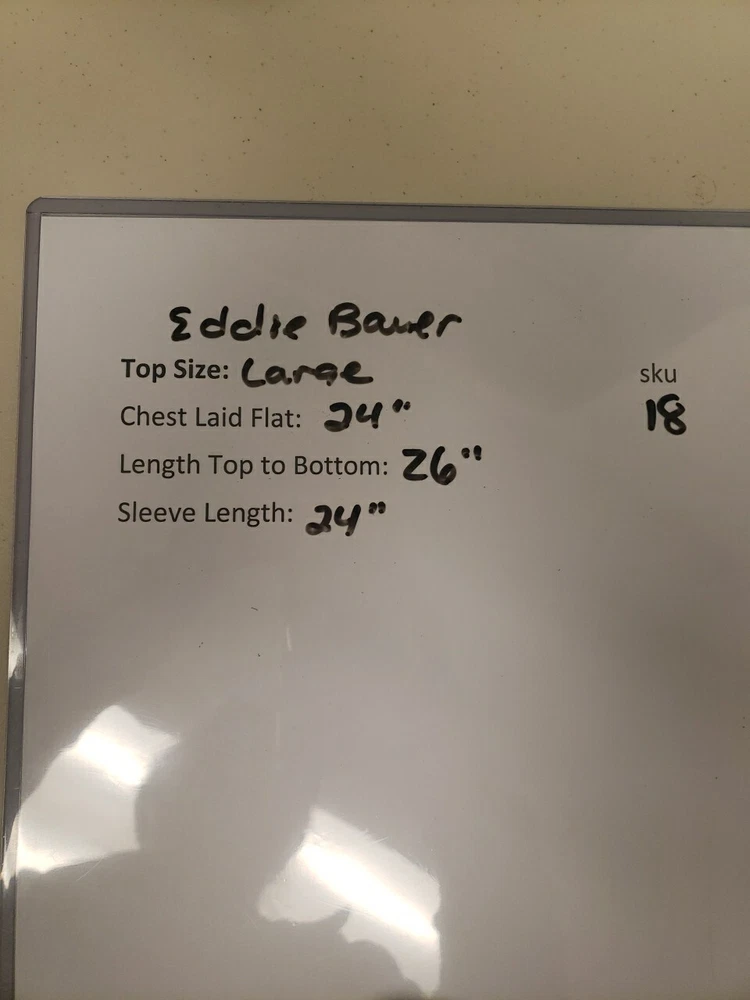 Eddie Bauer
Top Size: Large
sku
Chest Laid Flat: 24"
18
Length Top to Bottom: 26"
Sleeve Length: 24"